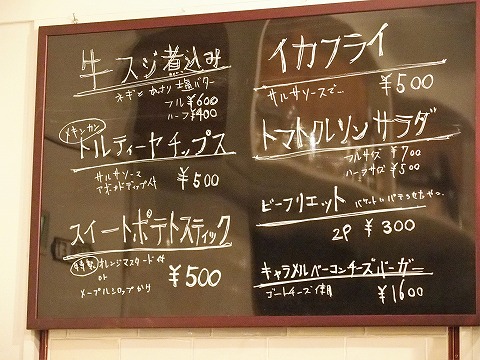 牛スジ煮込み
ネギと 塩バター
フル ¥600
ハーフ ¥400
メキシカン
トルティーヤチップス
サルサソースと
アボカドディップ付
¥500
スイートポテトスティック
特製 オレンジマスタード付
or
メープルシロップがけ
¥500
イカフライ
サルサソースで… ¥500
トマトクルトンサラダ
フルサイズ ¥700
ハーフサイズ ¥500
ビーフリエット
2P ¥300
キャラメルベーコンチーズバーガー
ゴートチーズ使用 ¥1600